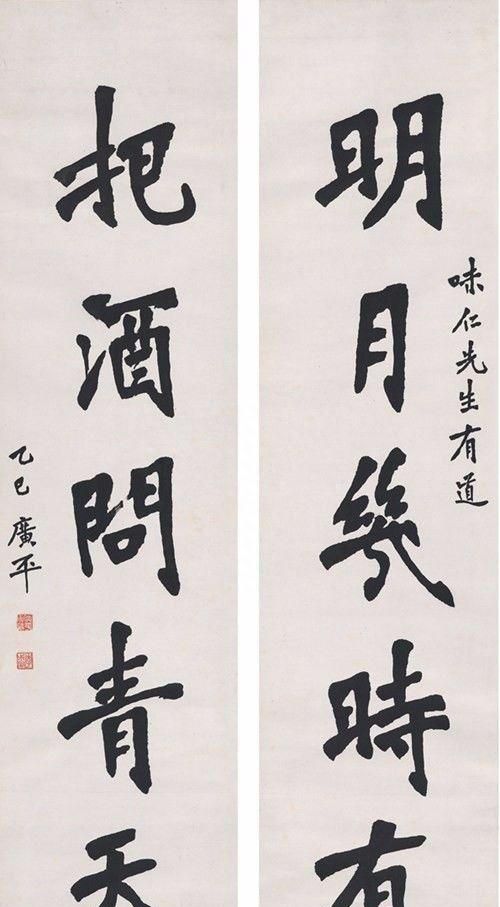 味仁先生有道
明月幾時有
把酒問青天
乙巳 廣平